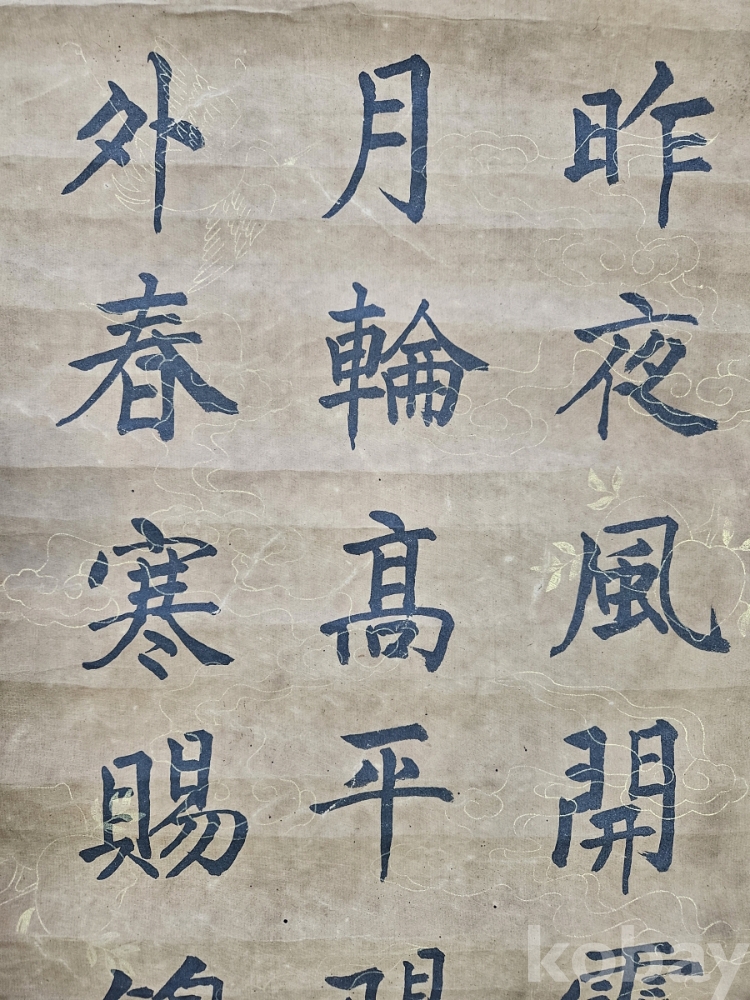 昨夜風開露
月輪高平陽
外春寒賜錦
kobay